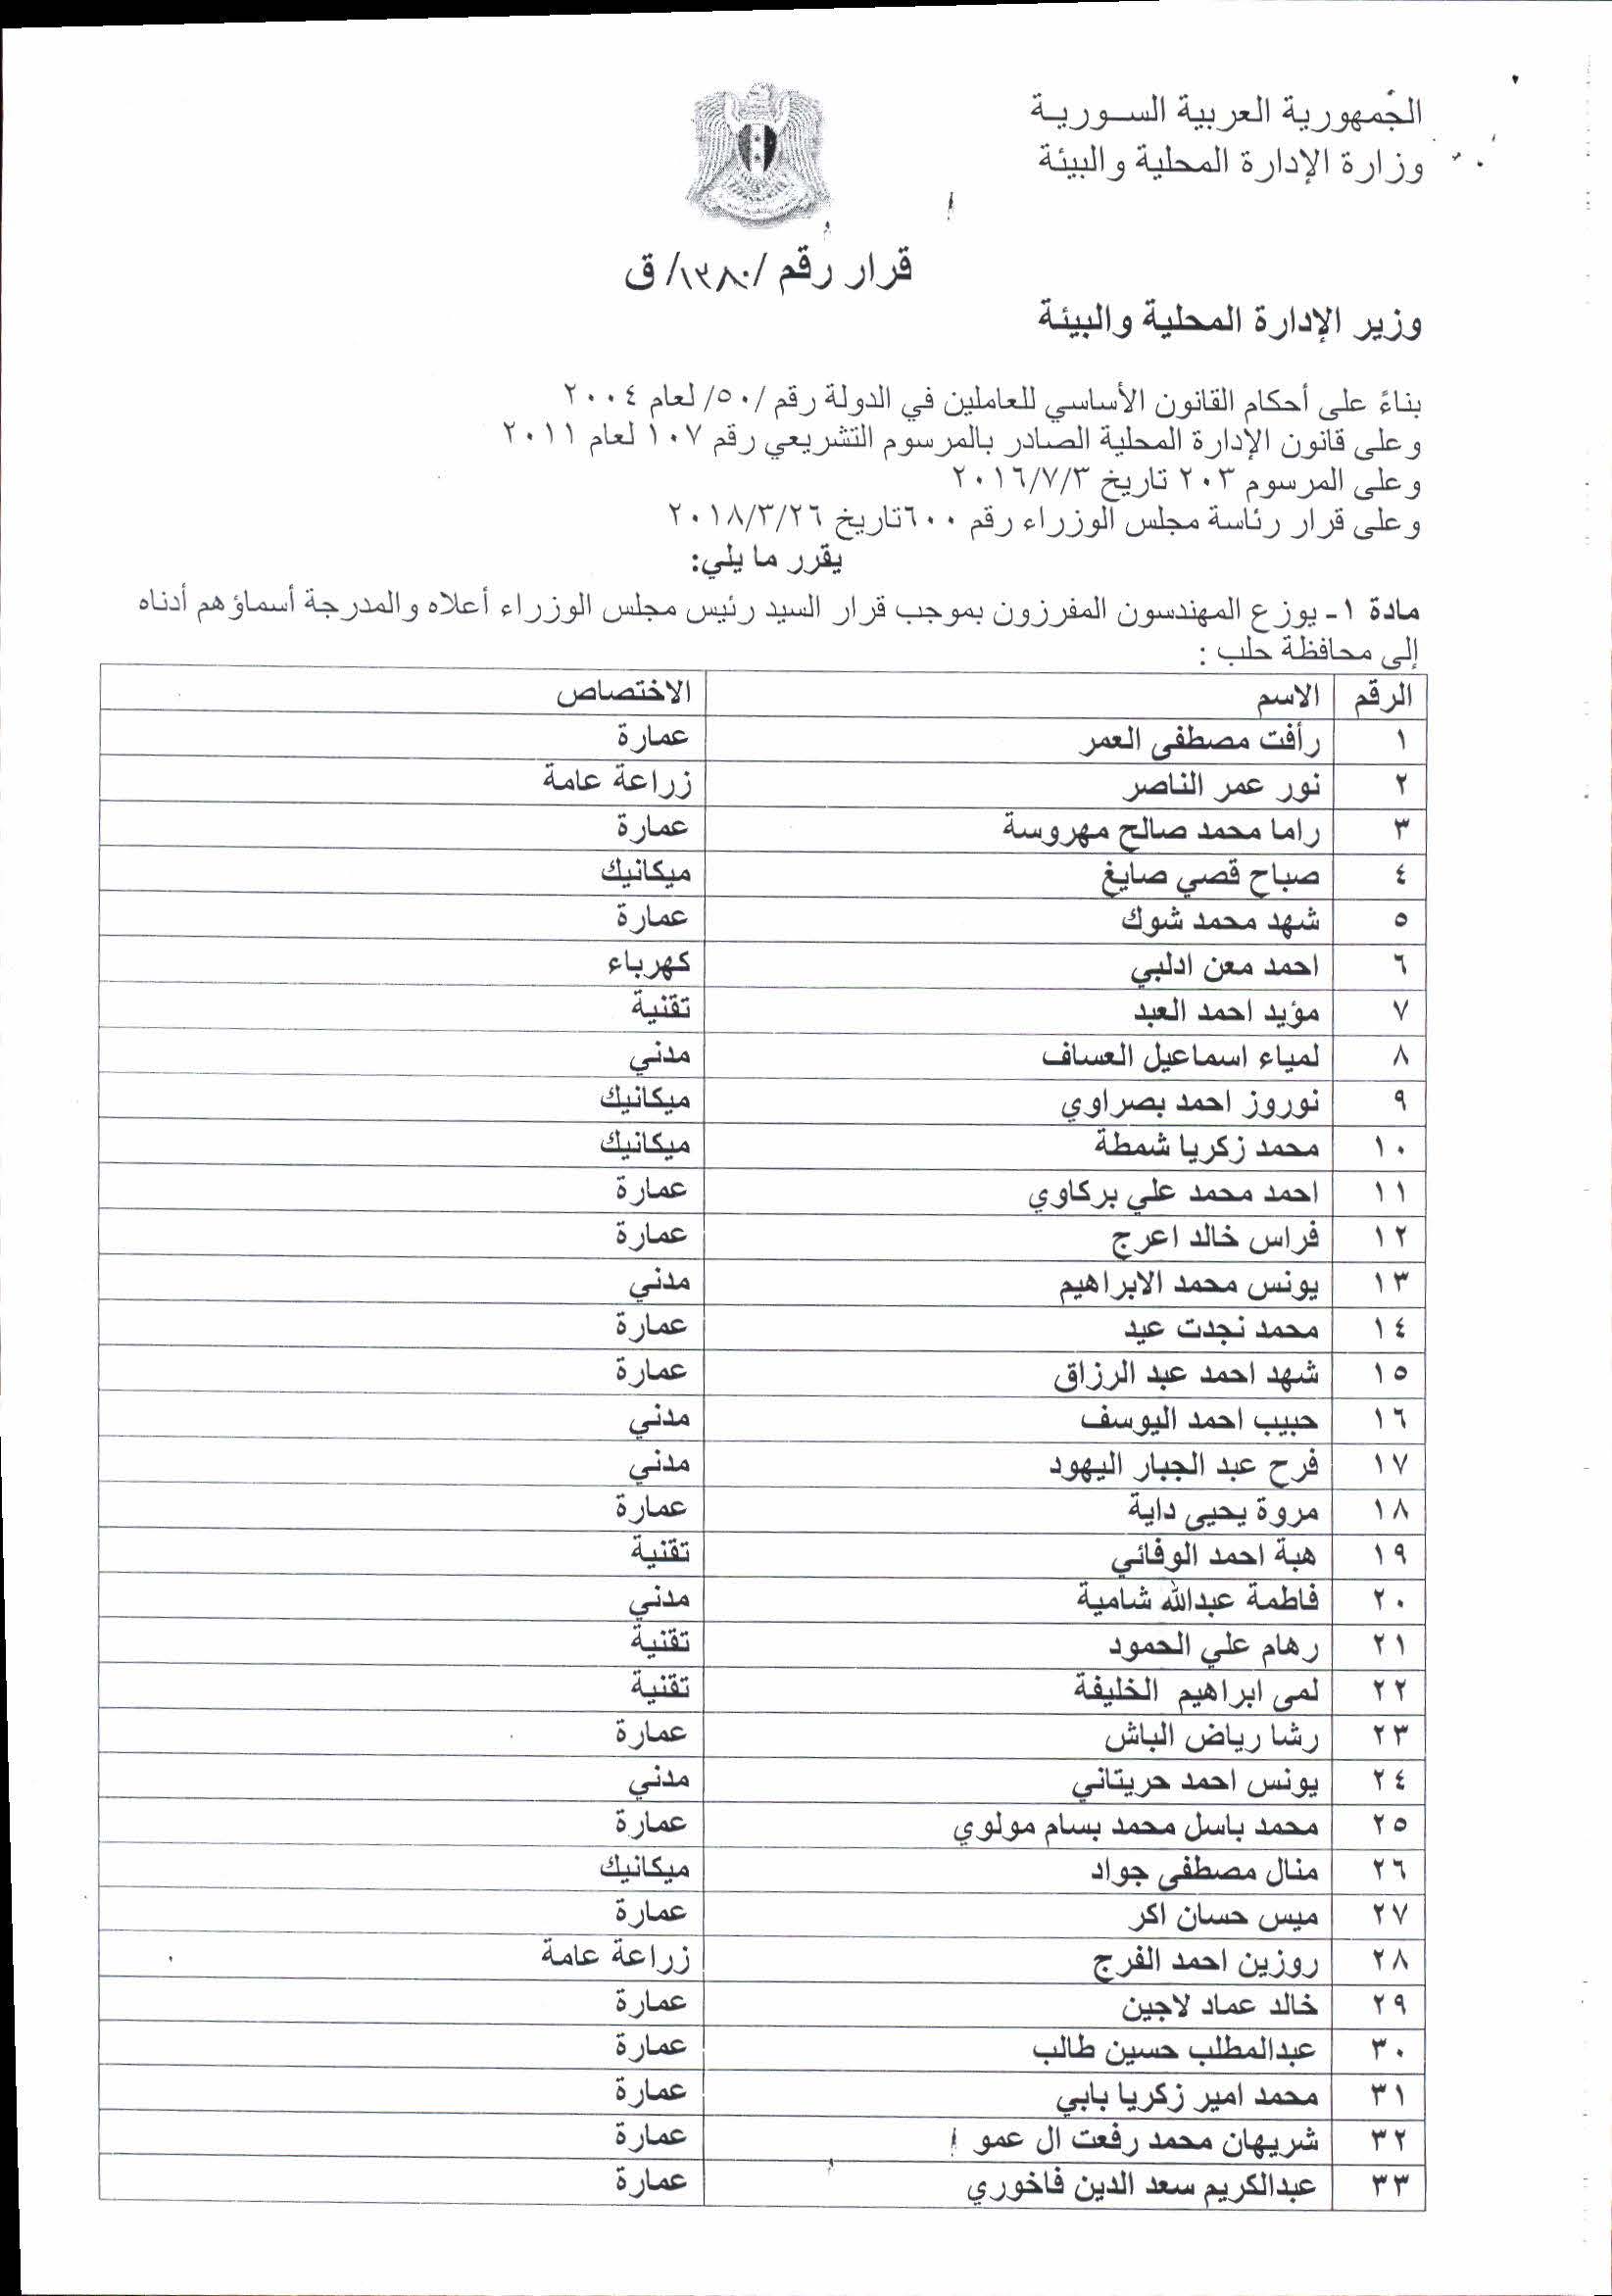 الجمهورية العربية السورية
وزارة الإدارة المحلية والبيئة
قرار رقم /١٣٨٠/ ق
وزير الإدارة المحلية والبيئة
بناءً على أحكام القانون الأساسي للعاملين في الدولة رقم /٥٠/ لعام ٢٠٠٤
وعلى قانون الإدارة المحلية الصادر بالمرسوم التشريعي رقم ١٠٧ لعام ٢٠١١
وعلى المرسوم ٢٠٣ تاريخ ٢٠١٦/٧/٣
وعلى قرار رئاسة مجلس الوزراء رقم ٦٠٠تاريخ ٢٠١٨/٣/٢٦
يقرر ما يلي:
مادة ١- يوزع المهندسون المفرزون بموجب قرار السيد رئيس مجلس الوزراء أعلاه والمدرجة أسماؤهم أدناه
إلى محافظة حلب :
الرقم الاسم الاختصاص
١ رأفت مصطفى العمر عمارة
٢ نور عمر الناصر زراعة عامة
٣ راما محمد صالح مهروسة عمارة
٤ صباح قصي صايغ ميكانيك
٥ شهد محمد شوك عمارة
٦ احمد معن ادلبي كهرباء
٧ مؤيد احمد العبد تقنية
٨ لمياء اسماعيل العساف مدني
٩ نوروز احمد بصراوي ميكانيك
١٠ محمد زكريا شمطة ميكانيك
١١ احمد محمد علي بركاوي عمارة
١٢ فراس خالد اعرج عمارة
١٣ يونس محمد الابراهيم مدني
١٤ محمد نجدت عيد عمارة
١٥ شهد احمد عبد الرزاق عمارة
١٦ حبيب احمد اليوسف مدني
١٧ فرح عبد الجبار اليهود مدني
١٨ مروة يحيى داية عمارة
١٩ هبة احمد الوفائي تقنية
٢٠ فاطمة عبدالله شامية مدني
٢١ رهام علي الحمود تقنية
٢٢ لمى ابراهيم الخليفة تقنية
٢٣ رشا رياض الباش عمارة
٢٤ يونس احمد حريتاني مدني
٢٥ محمد باسل محمد بسام مولوي عمارة
٢٦ منال مصطفى جواد ميكانيك
٢٧ ميس حسان اكر عمارة
٢٨ روزين احمد الفرج زراعة عامة
٢٩ خالد عماد لاجين عمارة
٣٠ عبدالمطلب حسين طالب عمارة
٣١ محمد امير زكريا بابي عمارة
٣٢ شريهان محمد رفعت ال عمو عمارة
٣٣ عبدالكريم سعد الدين فاخوري عمارة